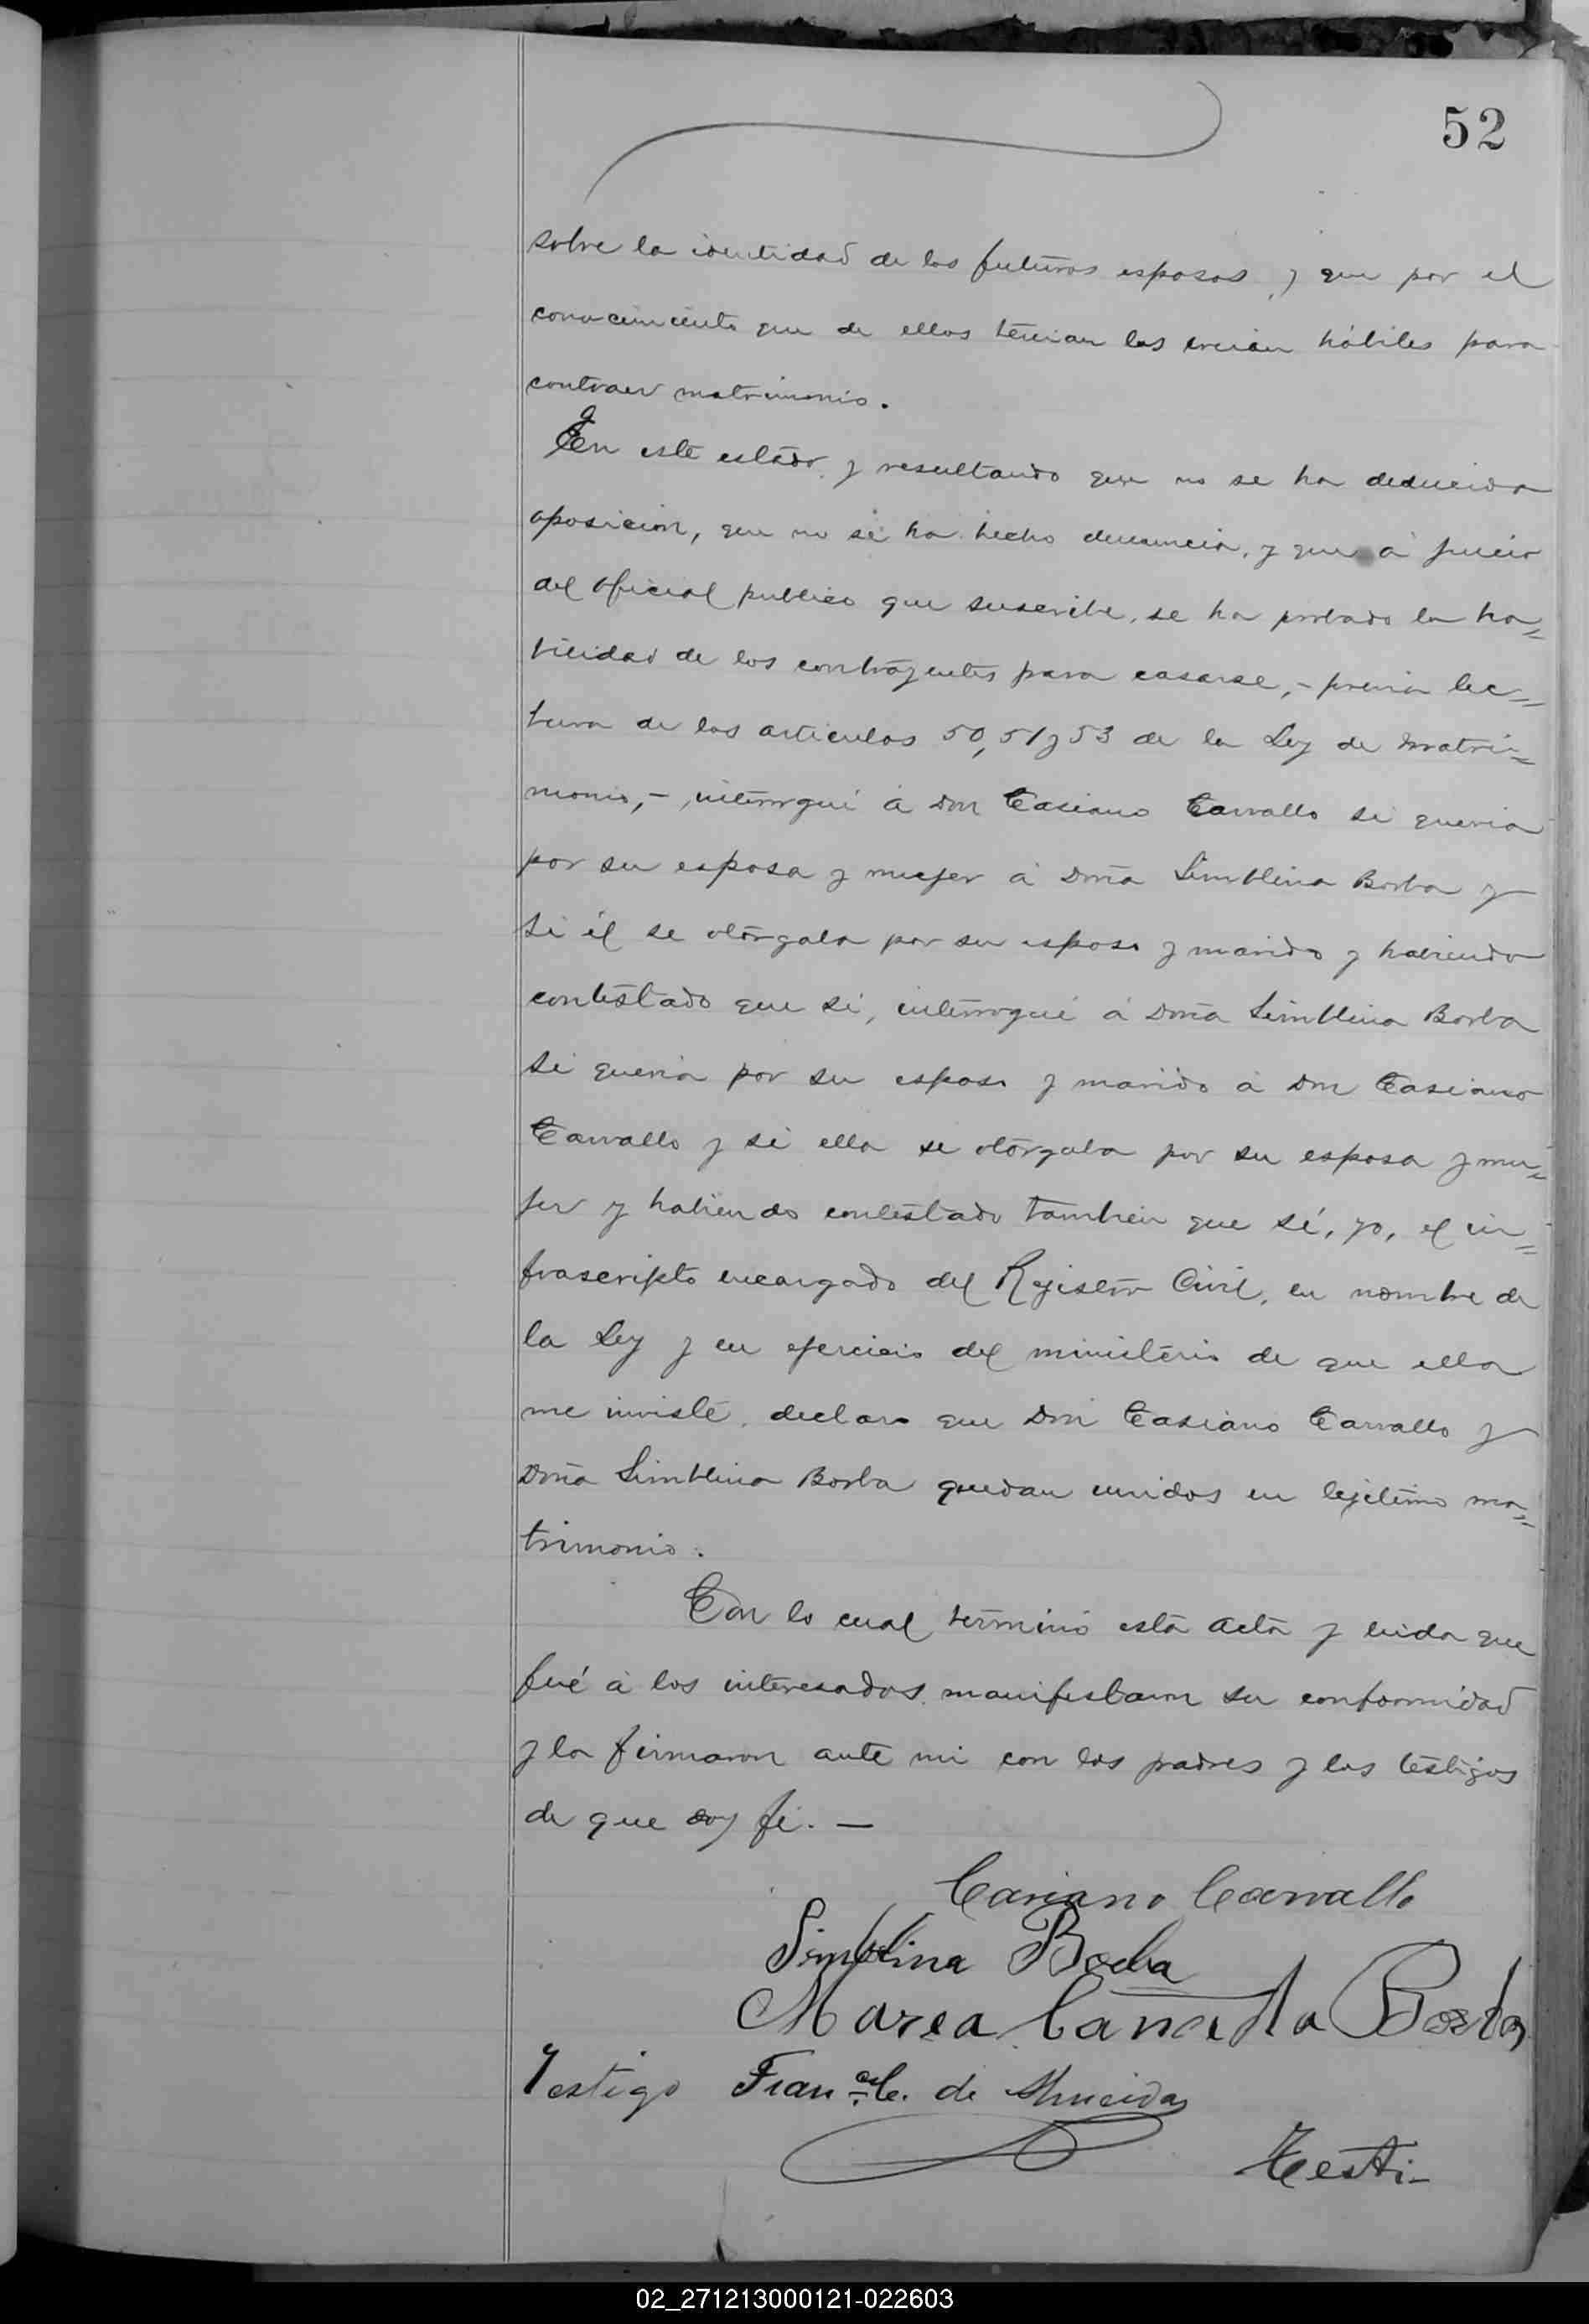 52
sobre la identidad de los futuros esposos, y que por el
conocimiento que de ellos tenian los creian hábiles para
contraer matrimonio.
En este estado y resultando que no se ha deducido
oposicion, que no se ha hecho denuncia, y que á juicio
del oficial publico que suscribe, se ha probado la ha=
bilidad de los contrayentes para casarse, - previa lec=
tura de los articulos 50, 51 y 53 de la Ley de Matri=
monio, - interrogué á Don Casiano Carvallo si queria
por su esposa y mujer á Doña Simblina Borba y
si él se otorgaba por su esposo y marido y habiendo
contestado que si, interrogué á Doña Simblina Borba
si queria por su esposo y marido á Don Casiano
Carvallo y si ella se otorgaba por su esposa y mu=
jer y habiendo contestado tambien que sí, yo, el in=
frascripto encargado del Rejistro Civil, en nombre de
la Ley y en ejercicio del ministerio de que ella
me inviste, declaro que Don Casiano Carvallo y
Doña Simblina Borba quedan unidos en lejitimo ma=
trimonio.
Con lo cual terminó esta acta y leida que
fué á los interesados, manifestaron su conformidad
y la firmaron ante mi con los padres y los testigos
de que doy fé. —
Casiano Carvallo
Simblina Borba
Marea Borba
Testigo Fran.co C. de Almeida
Testi-
02_271213000121-022603